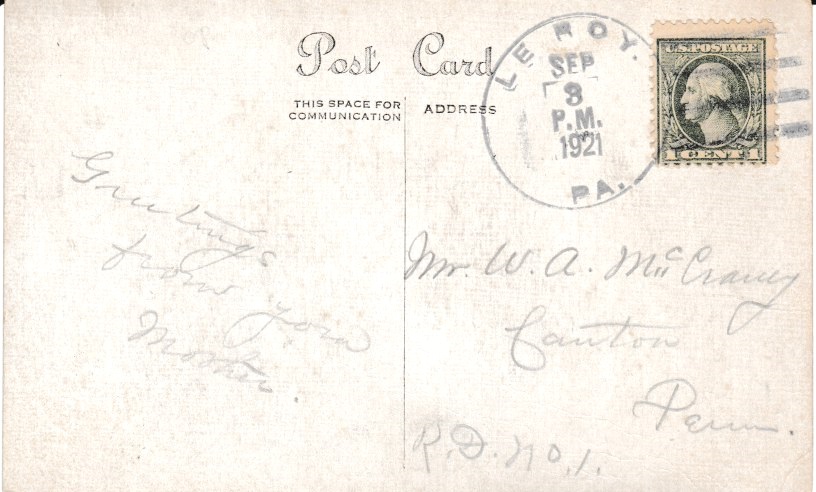 Post Card
THIS SPACE FOR
COMMUNICATION
ADDRESS
LE ROY.
SEP
3
P.M.
1921
PA.
U.S. POSTAGE
1 CENT 1
Greetings
from your
Mother.
Mr. W. A. McCraney
Canton
Penn.
R.D. no. 1.